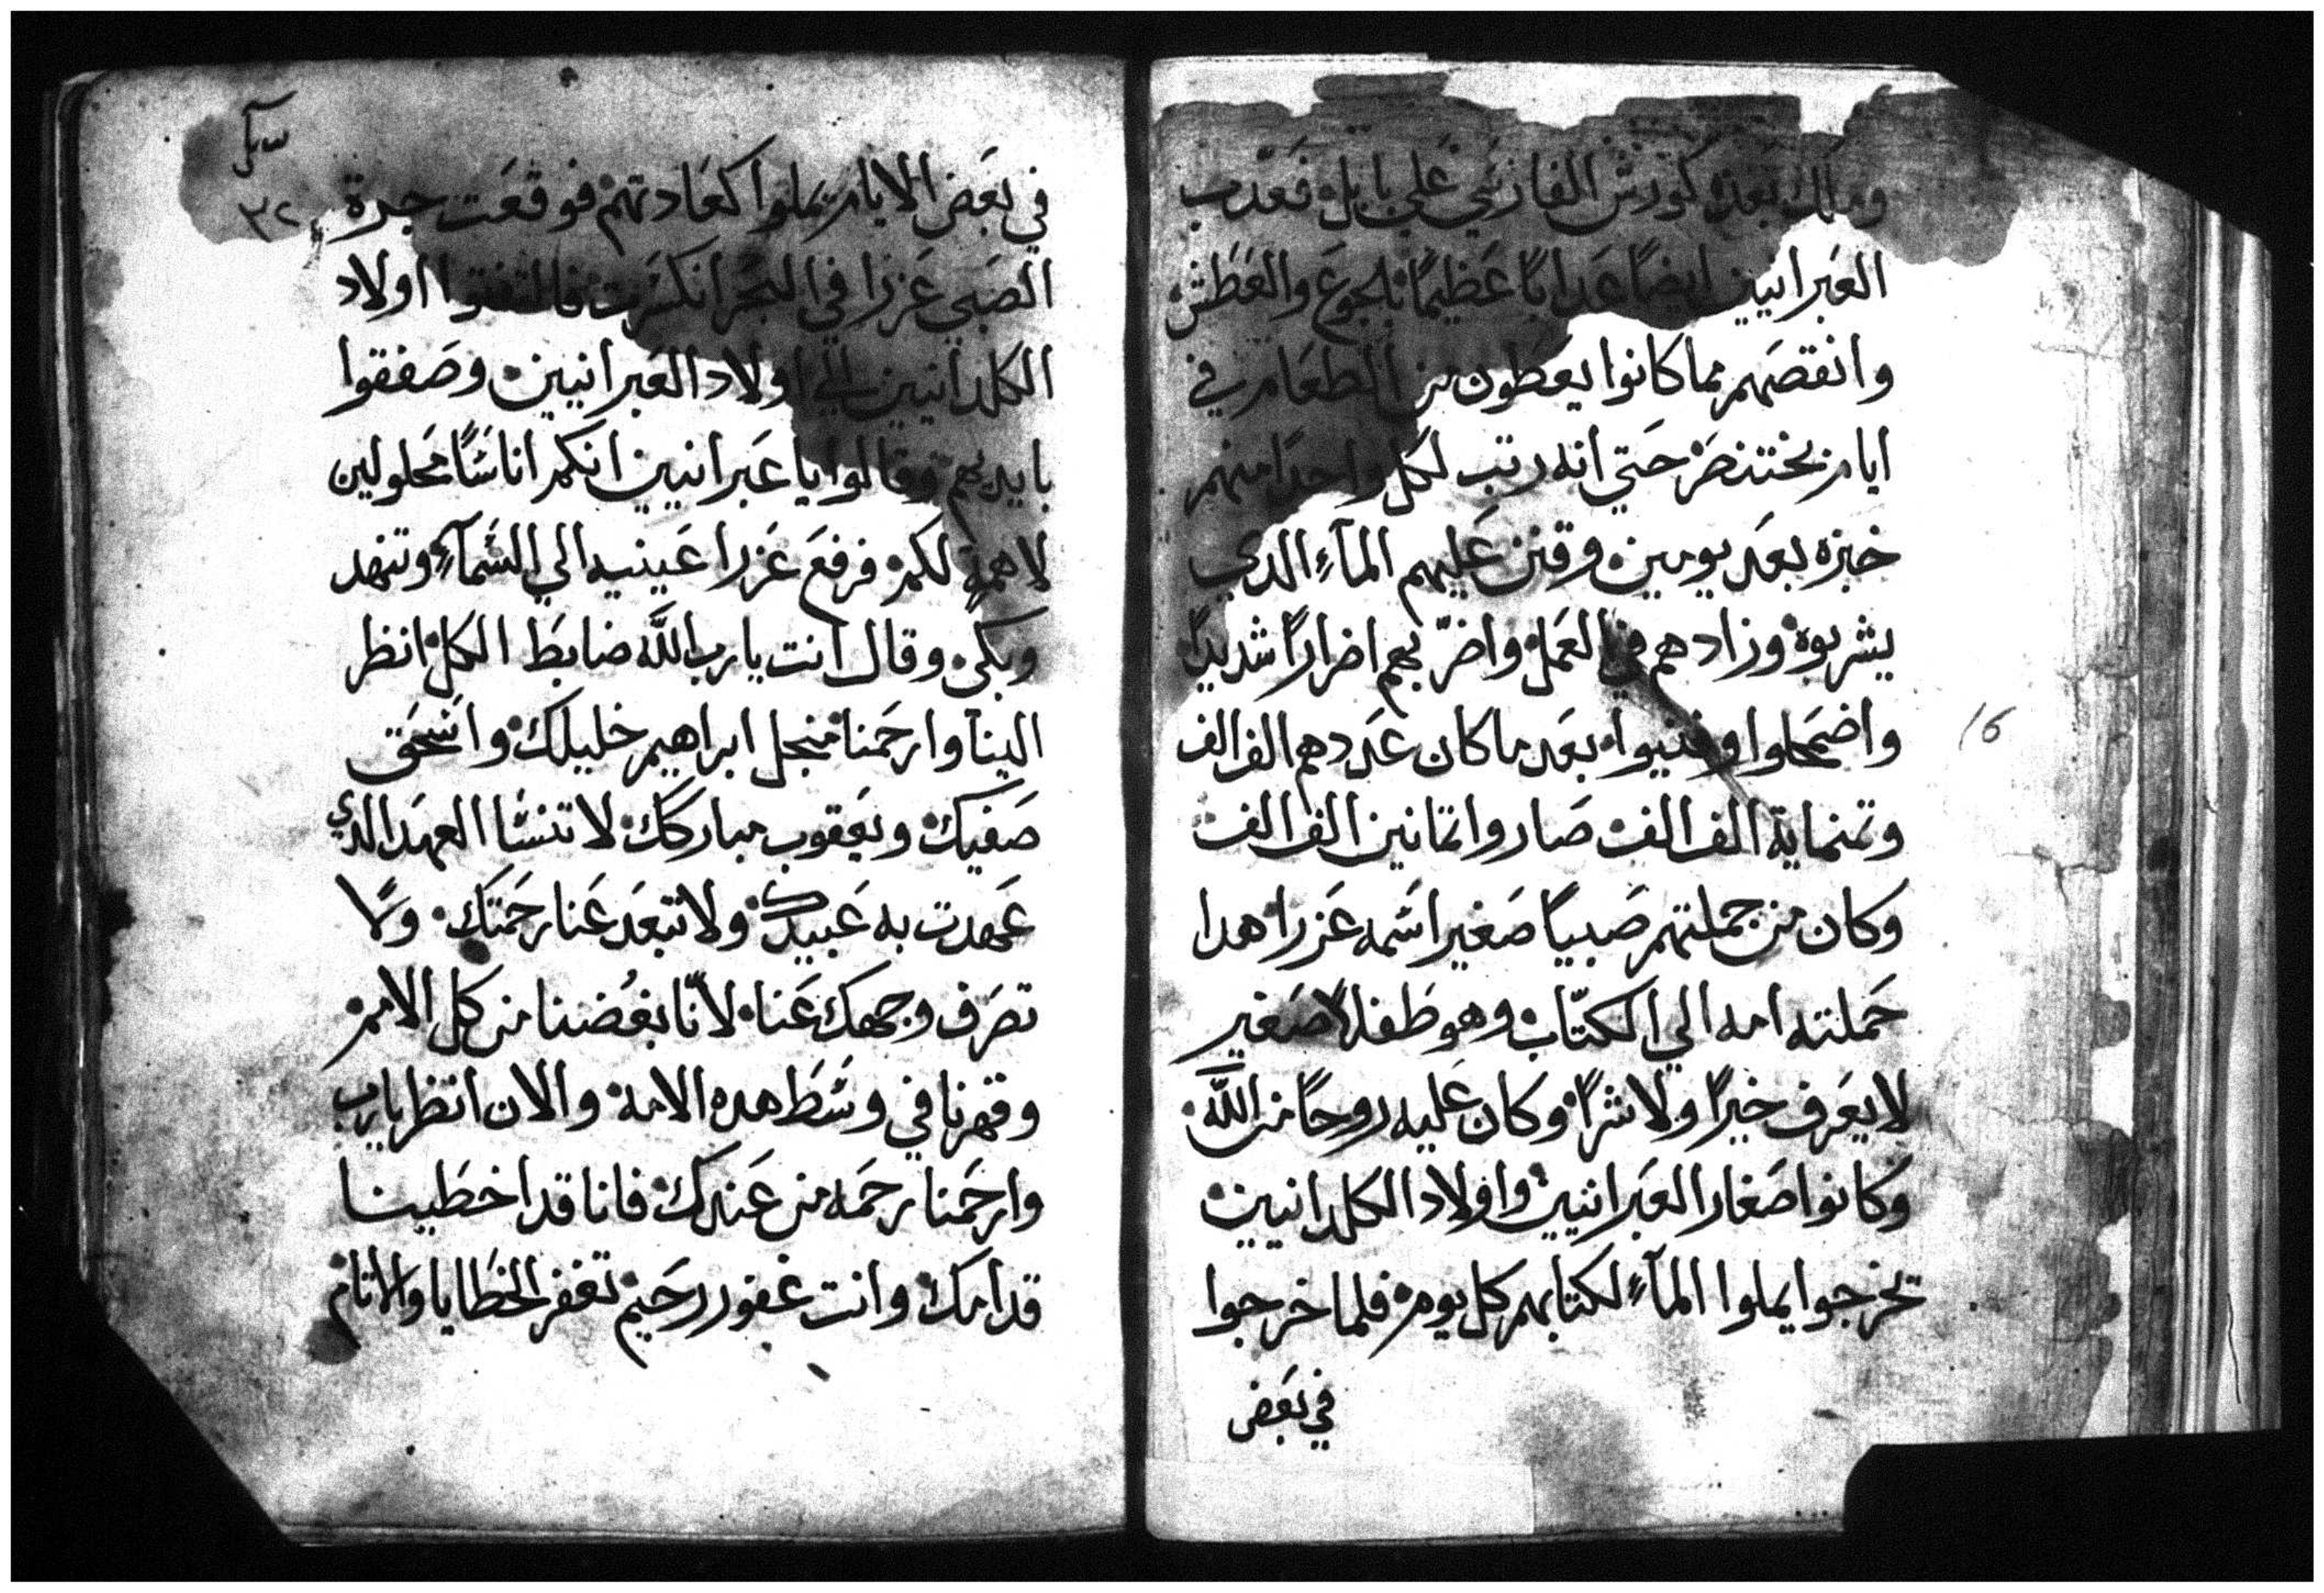 وملك بعده كورش الفارسي علي بابل فعدب
العبرانيين ايضا عدابا عظيما بالجوع والعطش
وانقصهم مما كانوا يعطون من الطعام في
ايام بختنصر حتي انه رتب لكل واحدا منهم
خبزه بعد يومين وقنن عليهم المآء الدي
يشربوه وزادهم في العمل واضرّ بهم اضرارًا شديدًا
واضمحلوا وفنيوا بعد ما كان عددهم الف الف
وتمنماية الف الف صاروا تمانين الف الف
وكان من جملتهم صبيًا صغيرا اسمه عزرا هدا
حملته امه الي الكتّاب وهو طفلا صغير
لا يعرف خيرًا ولا شرًا وكان عليه روحًا من الله
وكانوا صغار العبرانيين واولاد الكلدانيين
يخرجوا يملوا المآء لكتابهم كل يوم فلما خرجوا
في بعض
16
٣٢
في بعض الايام يملوا كعادتهم فوقعت جرة
الصبي عزرا في البحر انكسرت فالتفتوا اولاد
الكلدانيين الي اولاد العبرانيين وصفقوا
بايديهم وقالوا يا عبرانيين انكم اناسًا محلولين
لا همة لكم فرفع عزرا عينيه الي السمآء وتنهد
وبكي وقال انت يارب الله ضابط الكل انظر
الينا وارحمنا منجل ابراهيم خليلك واسحق
صفيك ويعقوب مباركك لا تنسا العهد الدي
عهدت به عبيدك ولا تبعد عنا رحمتك ولا
تصرف وجهك عنا لانّا بغضنا من كل الامم
وقهرنا في وسط هده الامة والان انظر يارب
وارحمنا رحمه من عندك فانا قد اخطينا
قدامك وانت غفور رحيم تغفر الخطايا والاتام